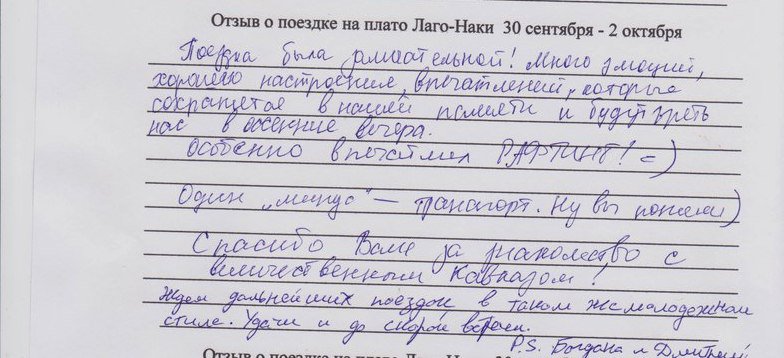 Отзыв о поездке на плато Лаго-Наки 30 сентября - 2 октября
Поездка была замечательной! Много эмоций,
хорошего настроения, впечатлений, которые
сохранятся в нашей памяти и будут греть
нас в осенние вечера.
Особенно впечатлил РАФТИНГ! =)
Один „минус“ — транспорт. Ну вы поняли)
Спасибо Вам за знакомство с
величественным Кавказом!
Ждем дальнейших поездок в таком же молодежном
стиле. Удачи и до скорой встречи.
P.S. Богдана и Дмитрий
Отзыв о поездке на плато Лаго-Наки 30